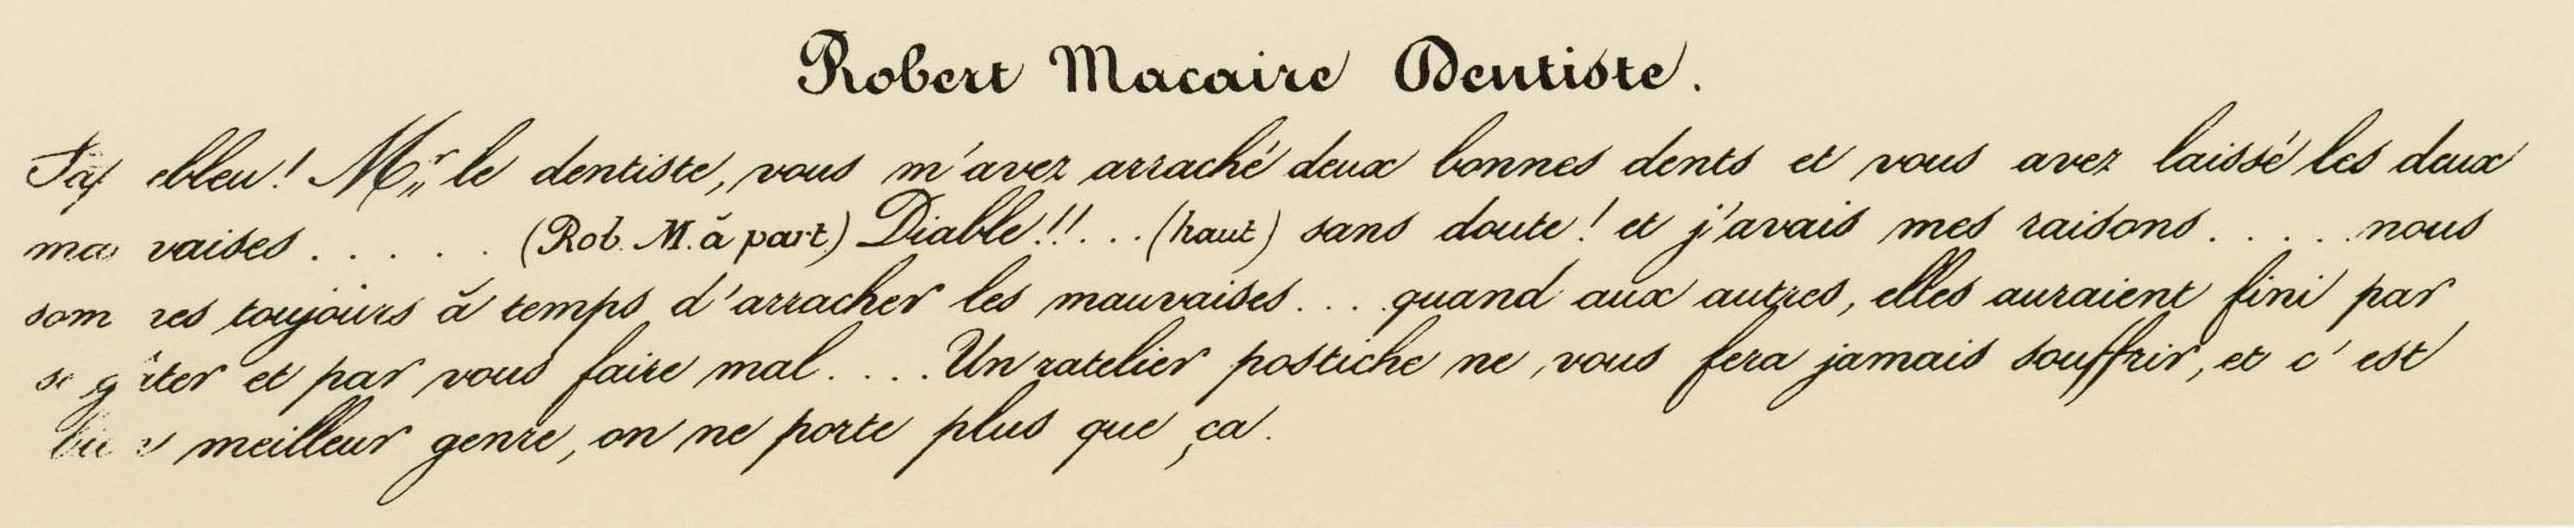 Robert Macaire Dentiste.
ebleu! Mr. le dentiste, vous m'avez arraché deux bonnes dents et vous avez laissé les deux
vaises . . . . . (Rob. M. à part) Diable!! . . . (haut) sans doute! et j'avais mes raisons . . . . . nous
toujours à temps d'arracher les mauvaises . . . quand aux autres, elles auraient fini par
et par vous faire mal . . . . Un ratelier postiche ne vous fera jamais souffrir, et c'est
meilleur genre, on ne porte plus que ça.